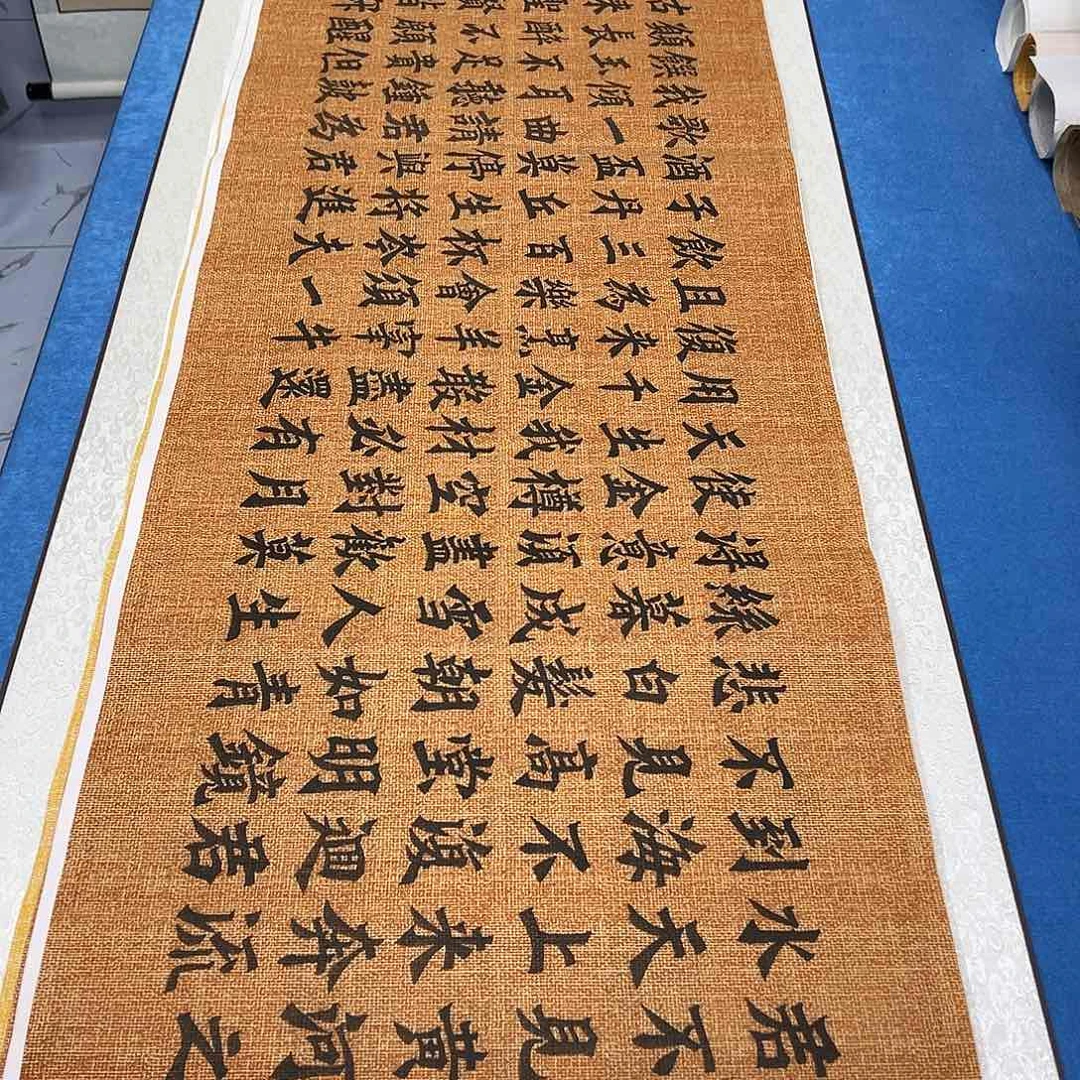 君不見黃河之
水天上来奔流
到海不復迴君
不見高堂明鏡
悲白髮朝如青
絲暮成雪人生
得意須盡歡莫
使金樽空對月
天生我材必有
用千金散盡還
復来烹羊宰牛
且為樂會須一
飲三百杯岑夫
子丹丘生將進
酒盃莫停與君
歌一曲請君為
我傾耳聽鍾鼓
饌玉不足貴但
願長醉不願醒
古来聖賢皆